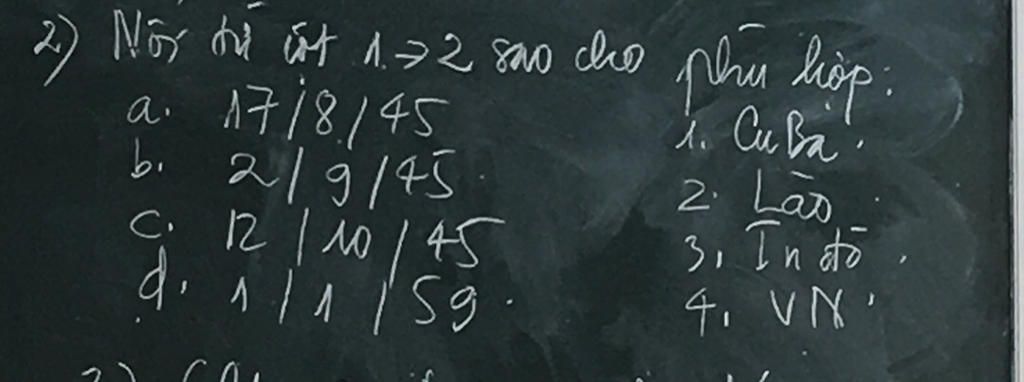 2) Nối từ cột 1 → 2 sao cho phù hợp:
a. 17/8/45 1. CuBa.
b. 2/9/45. 2. Lào.
c. 12/10/45 3. In đô.
d. 1/1/59. 4. VN.